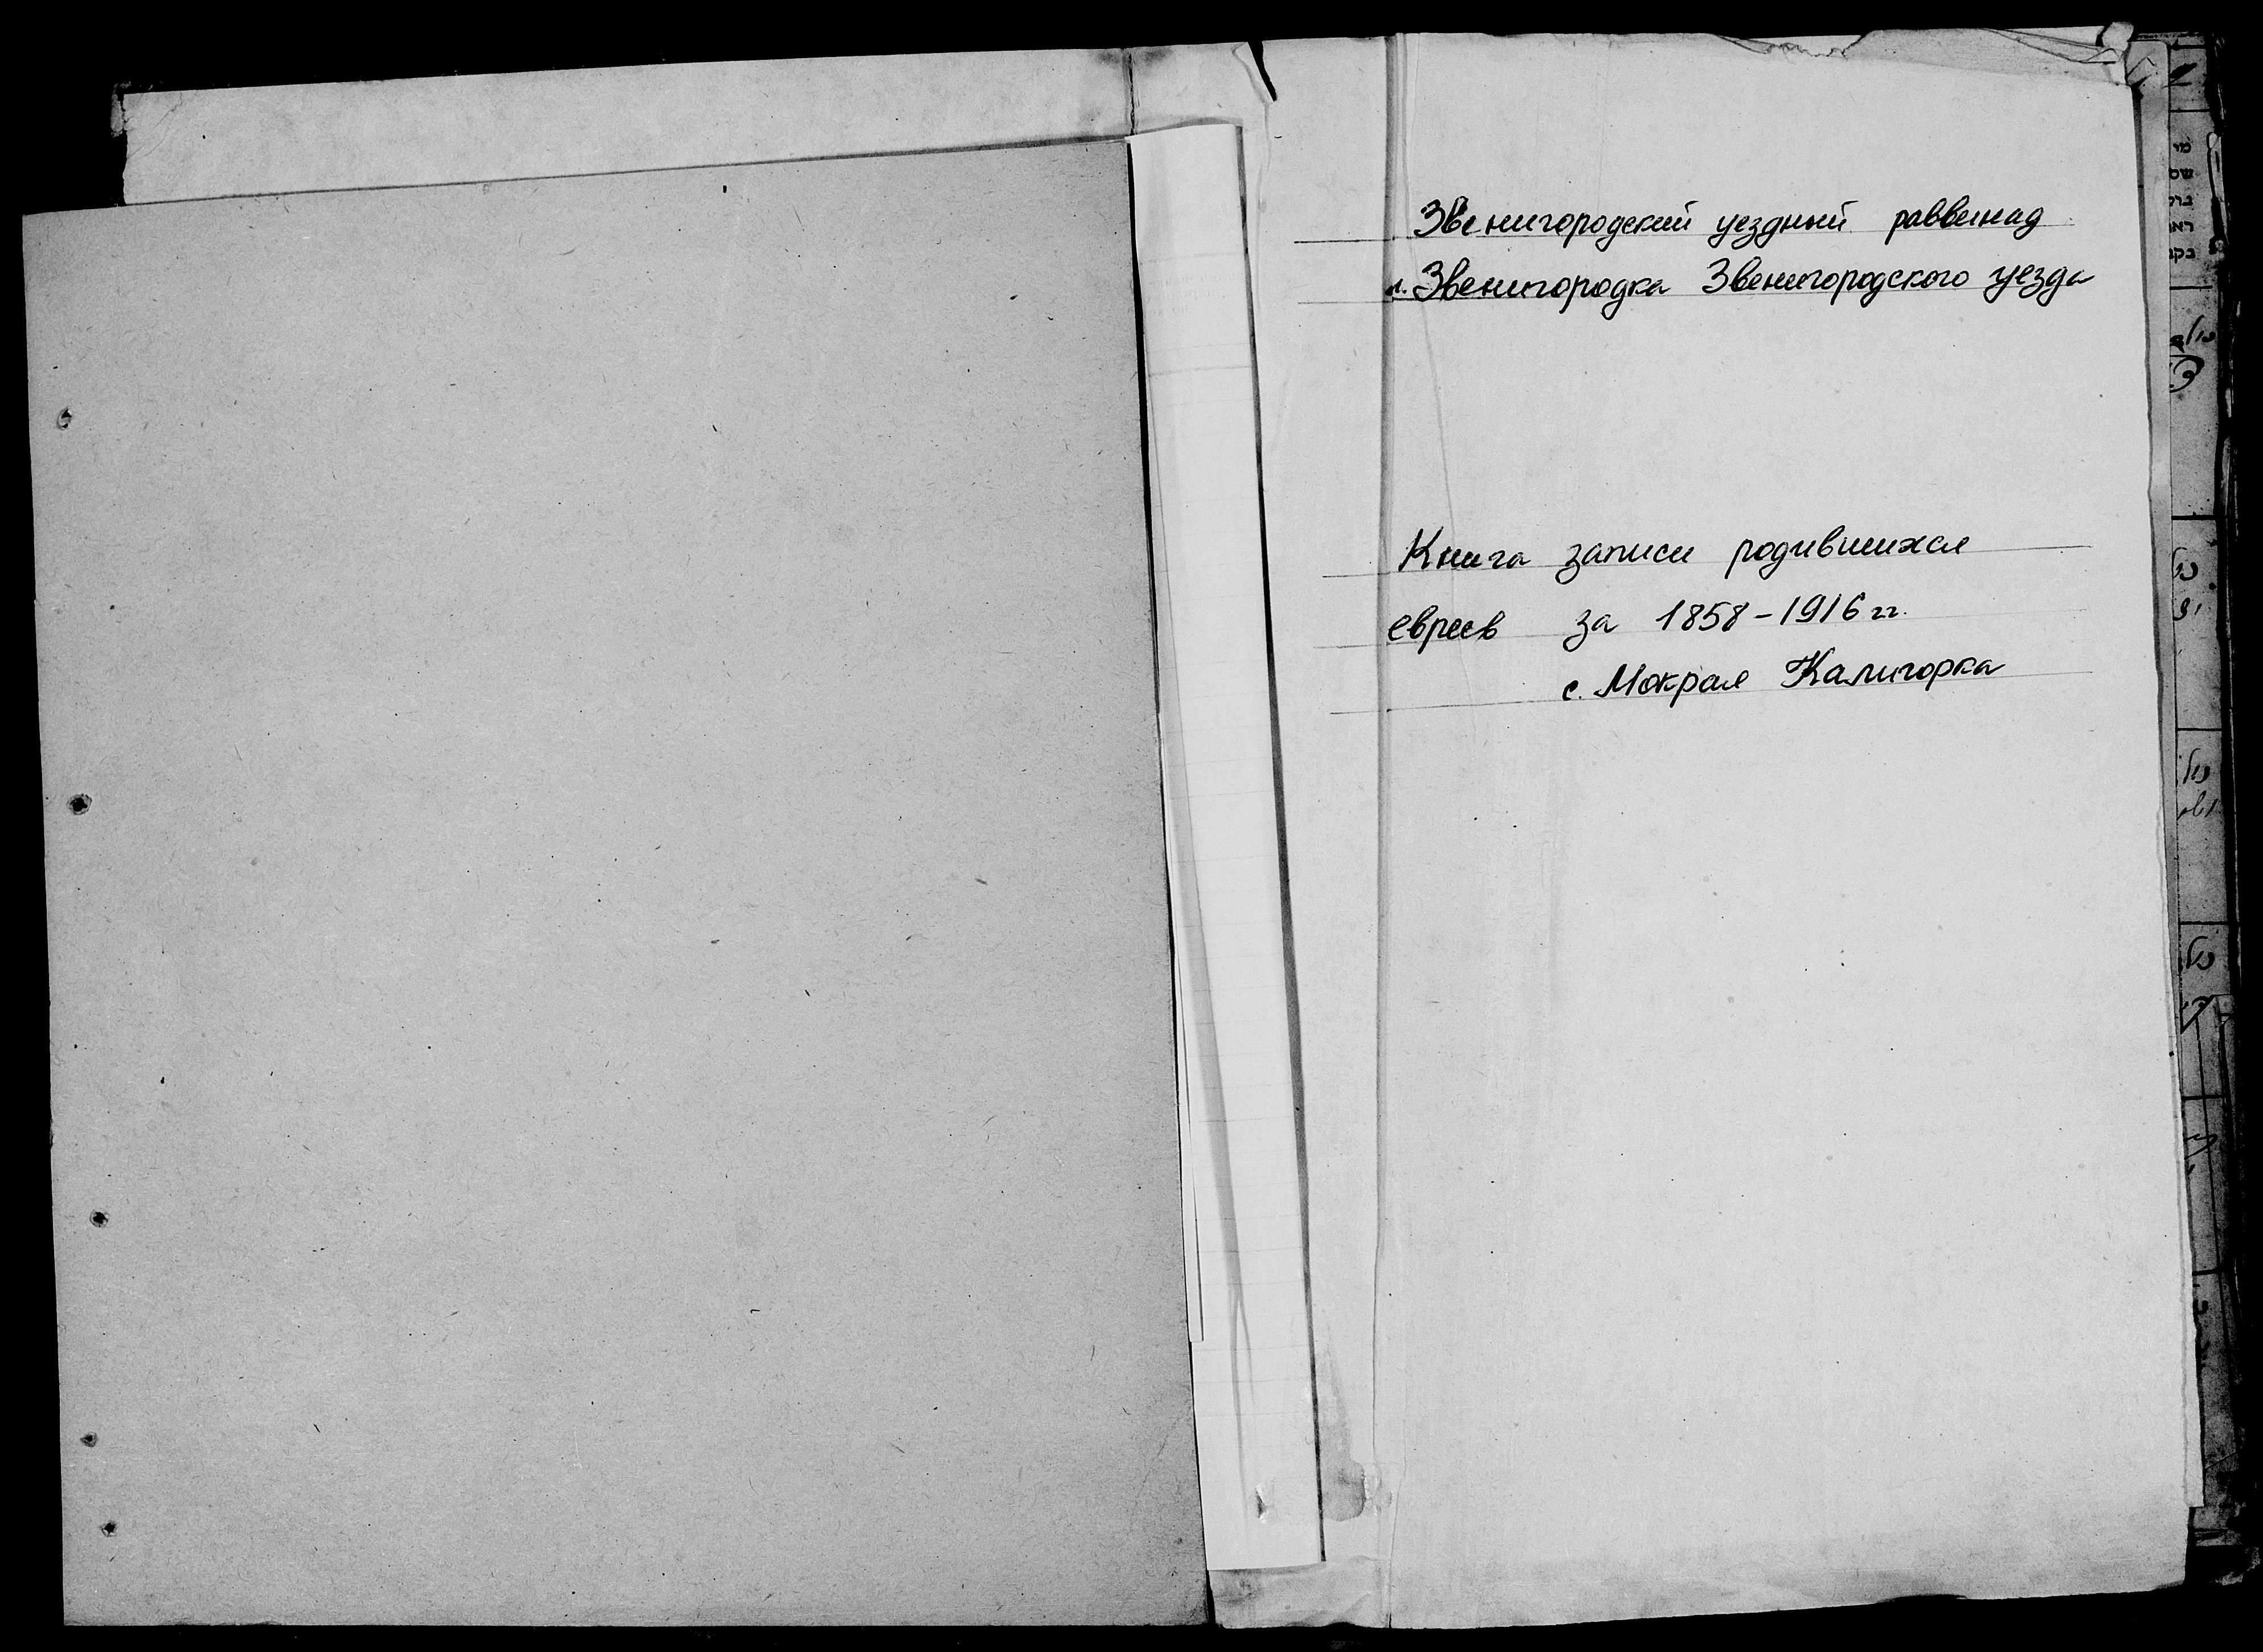 Звенигородский уездный раввинад
м. Звенигородка Звенигородского уезда
Книга записи родившихся
евреев за 1858-1916 гг.
с. Мокрая Калигорка